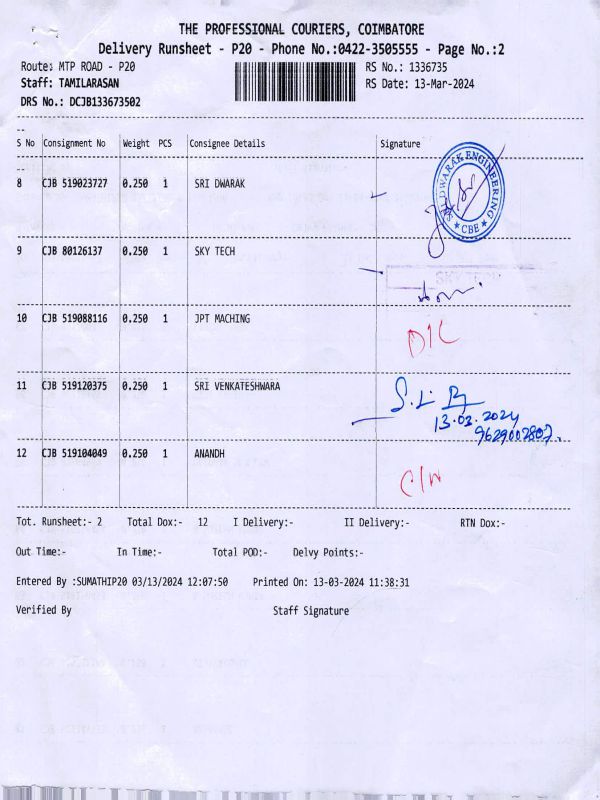 THE PROFESSIONAL COURIERS, COIMBATORE
Delivery Runsheet - P20 - Phone No.:0422-3505555 - Page No.:2
Route: MTP ROAD - P20 RS No.: 1336735
Staff: TAMILARASAN RS Date: 13-Mar-2024
DRS No.: DCJB133673502
S No Consignment No Weight PCS Consignee Details Signature
8 CJB 519023727 0.250 1 SRI DWARAK
DWARAK ENGINEERING
★ CBE ★
9 CJB 80126137 0.250 1 SKY TECH
SKY TECH
10 CJB 519088116 0.250 1 JPT MACHING
D/L
11 CJB 519120375 0.250 1 SRI VENKATESHWARA
13.03.2024
9629002807.
12 CJB 519104049 0.250 1 ANANDH
Tot. Runsheet:- 2 Total Dox:- 12 I Delivery:- II Delivery:- RTN Dox:-
Out Time:- In Time:- Total POD:- Delvy Points:-
Entered By :SUMATHIP20 03/13/2024 12:07:50 Printed On: 13-03-2024 11:38:31
Verified By Staff Signature